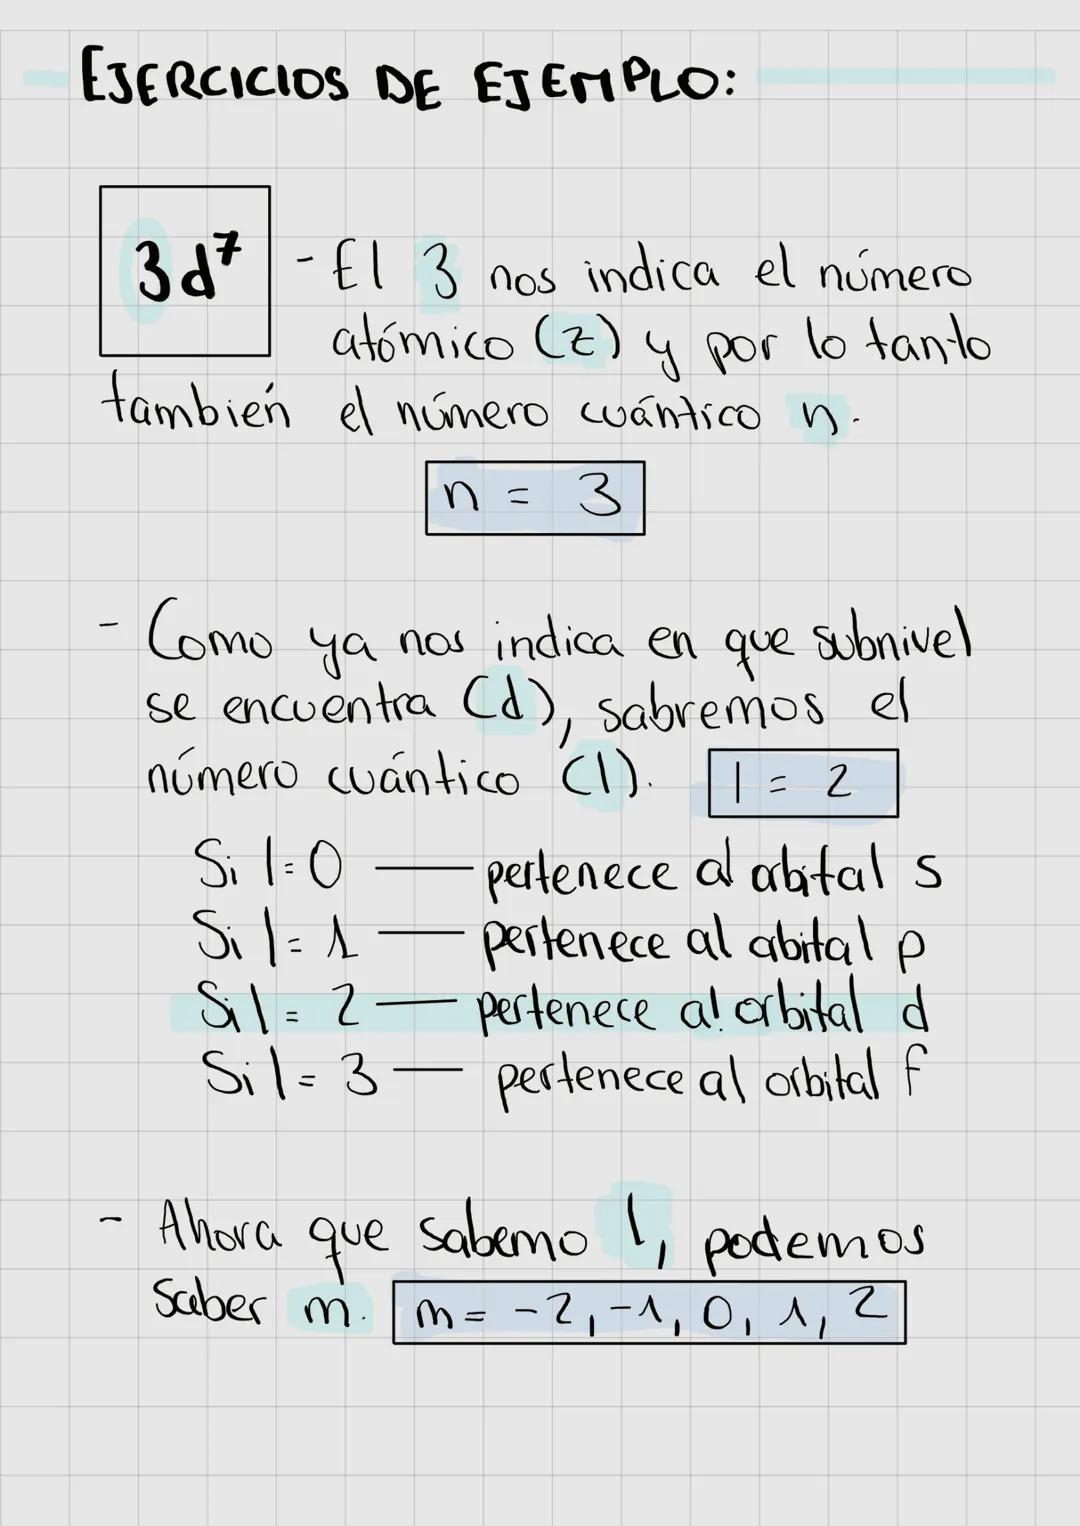 EJERCICIOS DE EJEMPLO:
3d⁷
- El 3 nos indica el número
atómico (z) y por lo tanto
también el número cuántico n.
n = 3
- Como ya nos indica en que subnivel
se encuentra (d), sabremos el
número cuántico (l).
l = 2
Si l=0 — pertenece al orbital s
Si l=1 — pertenece al orbital p
Si l=2 — pertenece al orbital d
Si l=3 — pertenece al orbital f
- Ahora que sabemo l, podemos
saber m.
m = -2, -1, 0, 1, 2